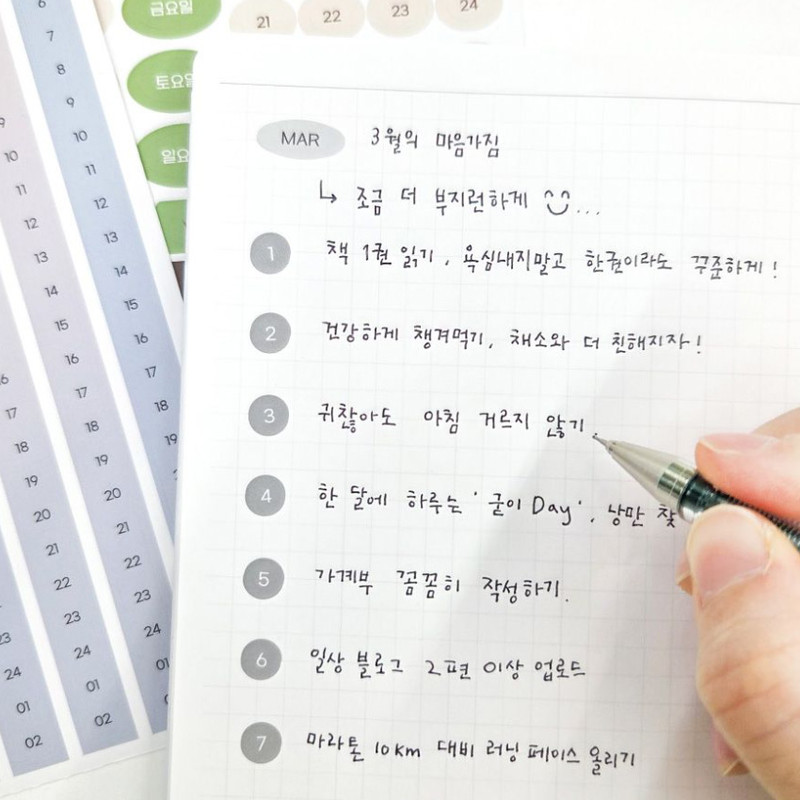 금요일 21 22 23 24
토요일
일요
MAR 3월의 마음가짐
↳ 조금 더 부지런하게 ...
1 책 1권 읽기, 욕심내지말고 한권이라도 꾸준하게!
2 건강하게 챙겨먹기, 채소와 더 친해지자!
3 귀찮아도 아침 거르지 않기.
4 한 달에 하루는 '굳이 Day'. 낭만 찾
5 가계부 꼼꼼히 작성하기.
6 일상 블로그 2편 이상 업로드
7 마라톤 10km 대비 러닝 페이스 올리기
9
10
11
12
13
14
15
16
17
18
19
20
21
22
23
24
01
02
6
7
8
9
10
11
12
13
14
15
16
17
18
19
20
21
22
23
24
01